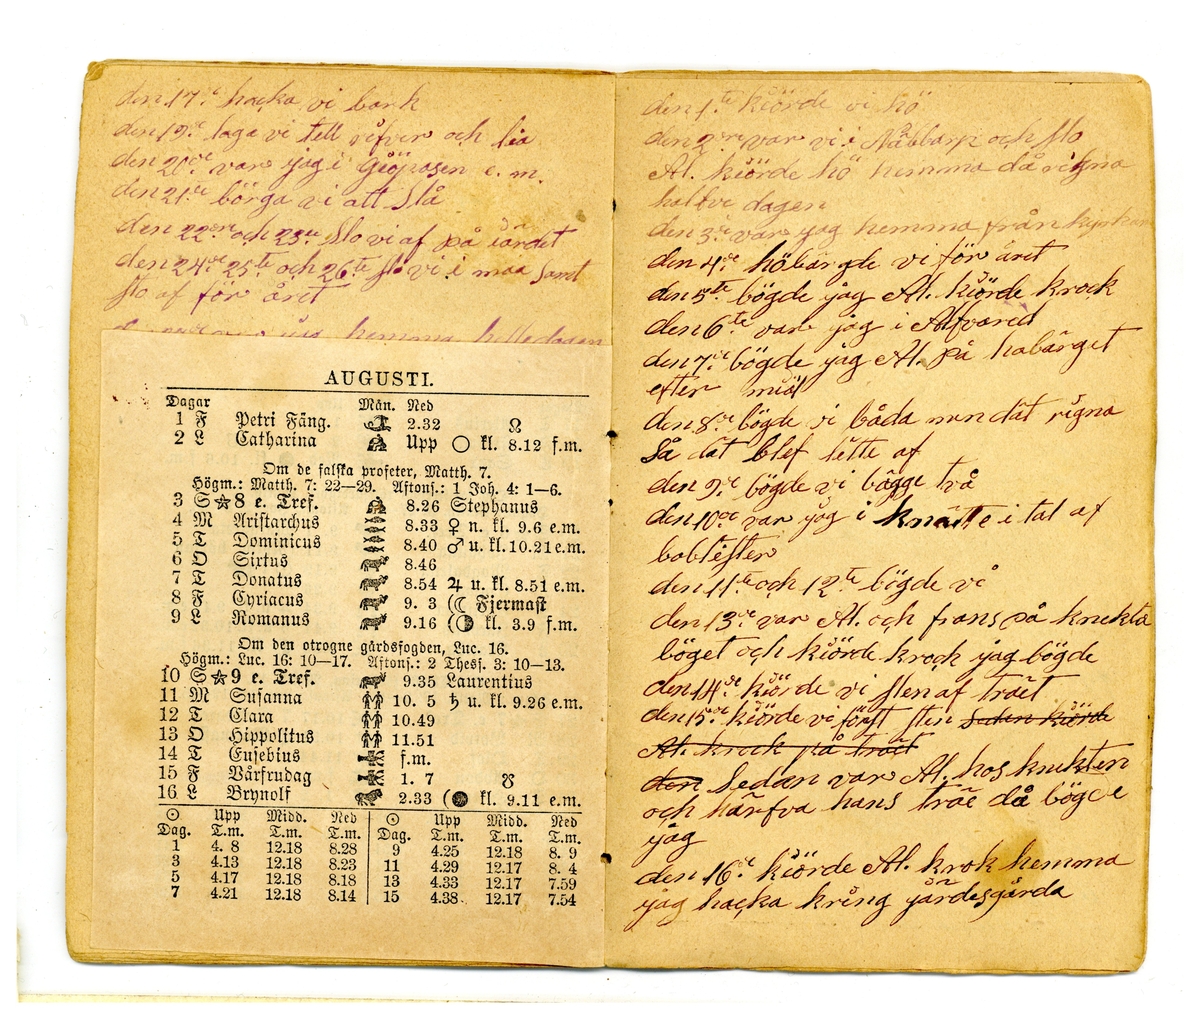 den 17de hacka vi bark
den 19de laga vi till räfver och lia
den 20de var jag i Giöpasen e. m.
den 21ta börga vi att Slå
den 22era och 23de Slo vi af på iordet
den 24de 25te och 26te slo vi i maa Samt
slo af för året
jag hemma helledagen
AUGUSTI.
Dagar Mån. Ned
1 F Petri Fäng. 2.32 ☊
2 L Catharina Upp ○ kl. 8.12 f.m.
Om de falska profeter, Matth. 7.
Högm.: Matth. 7: 22—29. Aftons.: 1 Joh. 4: 1—6.
3 S ☆ 8 e. Tref. 8.26 Stephanus
4 M Aristarchus 8.33 ♀ n. kl. 9.6 e.m.
5 T Dominicus 8.40 ♂ u. kl. 10.21 e.m.
6 O Sixtus 8.46
7 T Donatus 8.54 ♃ u. kl. 8.51 e.m.
8 F Cyriacus 9. 3 (☾ Fjermast
9 L Romanus 9.16 (◑ kl. 3.9 f.m.
Om den otrogne gårdsfogden, Luc. 16.
Högm.: Luc. 16: 10—17. Aftons.: 2 Thess. 3: 10—13.
10 S ☆ 9 e. Tref. 9.35 Laurentius
11 M Susanna 10. 5 ♄ u. kl. 9.26 e.m.
12 T Clara 10.49
13 O Hippolitus 11.51
14 T Eusebius f.m.
15 F Vårfrudag 1. 7 ☋
16 L Brynolf 2.33 (● kl. 9.11 e.m.
☉ Upp Midd. Ned ☉ Upp Midd. Ned
Dag. T.m. T.m. T.m. Dag. T.m. T.m. T.m.
1 4. 8 12.18 8.28 9 4.25 12.18 8. 9
3 4.13 12.18 8.23 11 4.29 12.17 8. 4
5 4.17 12.18 8.18 13 4.33 12.17 7.59
7 4.21 12.18 8.14 15 4.38 12.17 7.54
den 1sta kiörde vi hö
den 2ra var vi i Nabbarp och slo
Al. kiörde hö hemma då rigna
halfve dagen
den 3de var jag hemma från kyrkan
den 4de höbärgde vi för året
den 5te bögde jag Al. kiörde krock
den 6te var jag i Alfvared
den 7de bögde jag Al. på habärget
efter miöl
den 8de bögde vi båda men dät rigna
Så dät blef lette af
den 9de bögde vi bägge två
den 10de var jag i knätte i tal af
bobtister
den 11te och 12te bögde vi
den 13de var Al. och frans på knekta
böget och kiörde krock jag bögde
den 14de kiörde vi sten af träet
den 15de kiörde vi först sten Sedan kiörde
Al. krock på träet
den Sedan var Al. hos knekten
och härfva hans träe då bögde
jag
den 16de kiörde Al. krok hemma
jag hacka kring järdesgårda